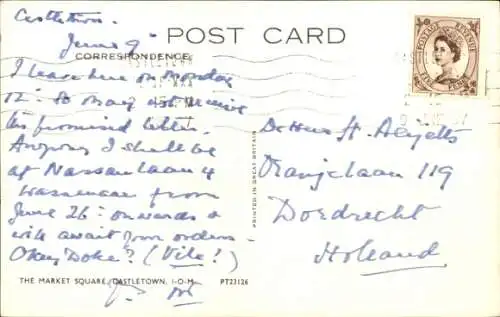 Castletown.
June 9
POST CARD
CORRESPONDENCE
I leave here on Monday
12th so may not receive
the promised letter.
Anyway I shall be
at Nassaulaan 4
Wassenaar from
June 26th onwards &
will await your orders.
Okey Doke? (Vile!)
De Heer H.
Oranjelaan 119
Dordrecht
Holland
PRINTED IN GREAT BRITAIN
POSTAGE REVENUE
THE MARKET SQUARE, CASTLETOWN, I-O-M.
PT23126